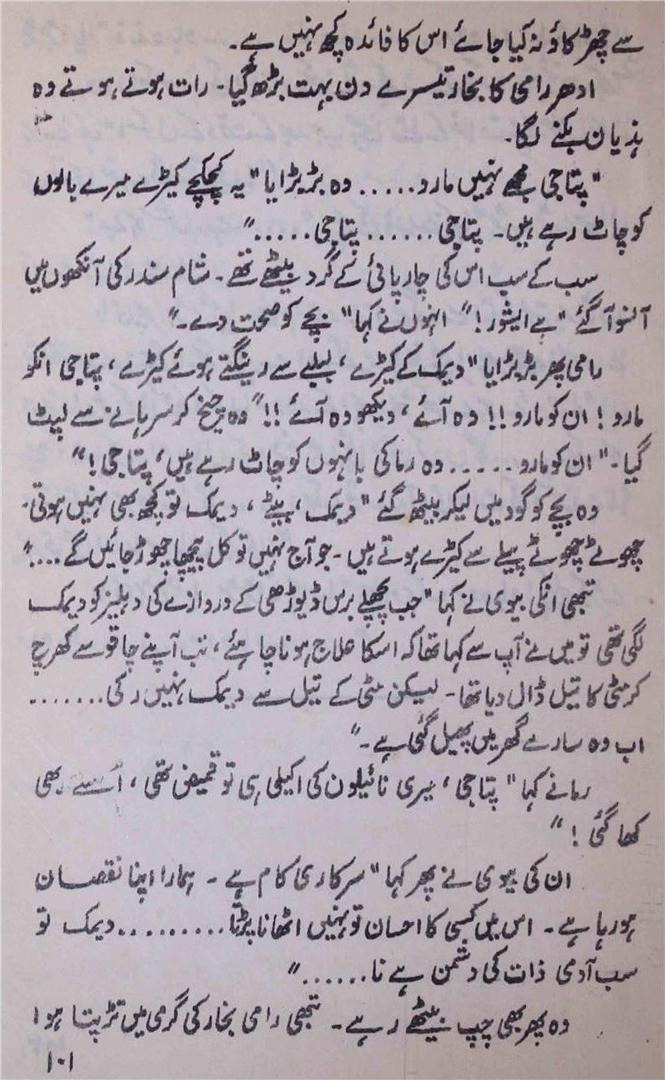 سے چھڑکاؤ نہ کیا جائے اس کا فائدہ کچھ نہیں ہے۔
ادھر رامی کا بخار تیسرے دن بہت بڑھ گیا۔ رات ہوتے ہوتے وہ
ہذیان بکنے لگا۔
"پتاجی مجھے نہیں مارو..... وہ بڑبڑایا" یہ کچکچے کیڑے میرے بالوں
کو چاٹ رہے ہیں۔ پتاجی...... پتاجی....."
سب کے سب اس کی چارپائی کے گرد بیٹھے تھے۔ شام سندر کی آنکھوں میں
آنسو آگئے "ہے ایشور!" انہوں نے کہا "بچے کو صحت دے۔"
رامی پھر بڑبڑایا "دیمک کے کیڑے، لبلبے سے رینگتے ہوئے کیڑے، پتاجی انکو
مارو! ان کو مارو!! وہ آئے، دیکھو وہ آئے!!" وہ چیخ کر سرہانے سے لپٹ
گیا۔ "ان کو مارو..... وہ رما کی بانہوں کو چاٹ رہے ہیں، پتاجی!"
وہ بچے کو گود میں لیکر بیٹھ گئے "دیمک، بیٹے، دیمک تو کچھ بھی نہیں ہوتی۔
چھوٹے چھوٹے پیلے سے کیڑے ہوتے ہیں۔ جو آج نہیں تو کل پیچھا چھوڑ جائیں گے...."
تبھی انکی بیوی نے کہا "جب پچھلے برس ڈیوڑھی کے دروازے کی دہلیز کو دیمک
لگی تھی تو میں نے آپ سے کہا تھا کہ اسکا علاج ہونا چاہئے، تب آپنے چاقو سے کھرچ
کر مٹی کا تیل ڈال دیا تھا۔ لیکن مٹی کے تیل سے دیمک نہیں رکی.......
اب وہ سارے گھر میں پھیل گئی ہے۔"
رما نے کہا "پتاجی، میری نائیلون کی اکیلی ہی تو قمیض تھی، اُسے بھی
کھا گئی!"
ان کی بیوی نے پھر کہا "سرکاری کام ہے۔ ہمارا اپنا نقصان
ہو رہا ہے۔ اس میں کسی کا احسان تو نہیں اٹھانا پڑتا......... دیمک تو
سب آدمی ذات کی دشمن ہے نا......"
وہ پھر بھی چپ بیٹھے رہے۔ تبھی رامی بخار کی گرمی میں تڑپتا ہوا
۱۰۱